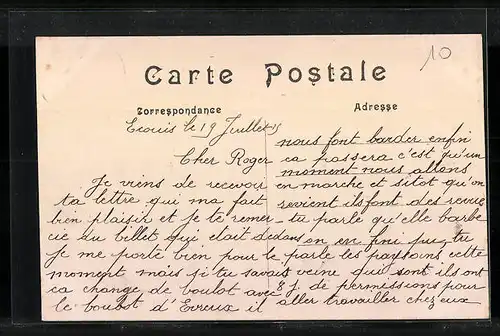 10
Carte Postale
Correspondance
Adresse
Ecouis le 19 Juillet 15
Cher Roger
Je viens de recevoir
ta lettre qui ma fait
bien plaisir et je te remer-
cie du billet qui etait dedans
je me porte bien pour le
moment mais si tu savais
ca change de boulot avec
le boulot d'Evreux il
nous font barder enfin
ca passera c'est qu'un
moment nous allons
en marche et sitot qu'on
revient ils font des revue
tu parle qu'elle barbe
on en fini pu tu
parle les paysans cette
veine qui sont ils ont
8 j. de permissions pour
aller travailler chez eux